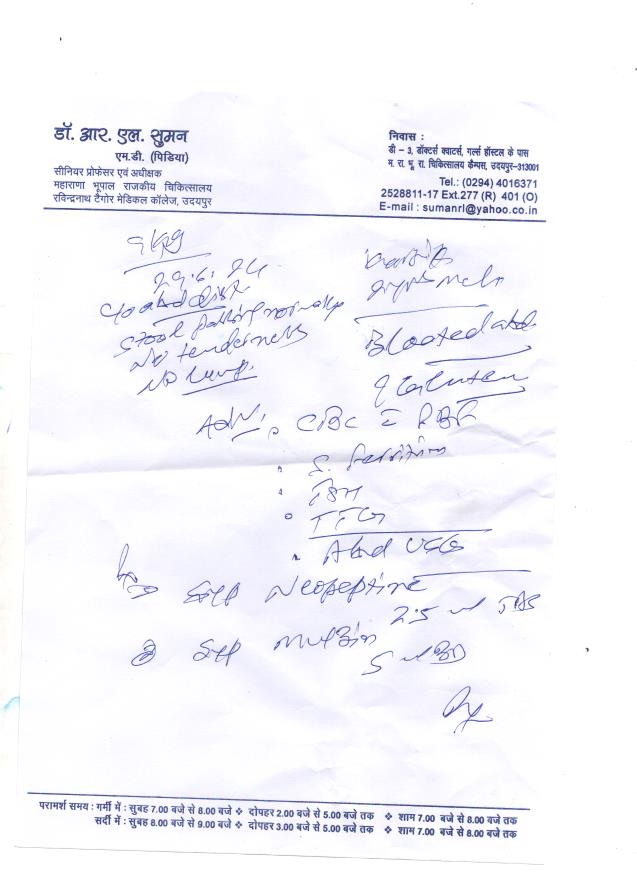 डॉ. आर. एल. सुमन
एम.डी. (पिडिया)
सीनियर प्रोफेसर एवं अधीक्षक
महाराणा भूपाल राजकीय चिकित्सालय
रविन्द्रनाथ टैगोर मेडिकल कॉलेज, उदयपुर
निवास :
डी – 3, डॉक्टर्स क्वाटर्स, गर्ल्स हॉस्टल के पास
म. रा. भू. रा. चिकित्सालय कैम्पस, उदयपुर–313001
Tel.: (0294) 4016371
2528811-17 Ext.277 (R) 401 (O)
E-mail : sumanrl@yahoo.co.in
9 kg
29.6.24
c/o abd dist
Stool passing normally
No tenderness
No lump.
Bloated abd
? Gluten
Adv. CBC RBF
S. Ferritin
TSH
TTG
Abd USG
Syp Neopeptine
2.5 ml TDS
② Syp
5 ml BD
परामर्श समय : गर्मी में : सुबह 7.00 बजे से 8.00 बजे ❖ दोपहर 2.00 बजे से 5.00 बजे तक ❖ शाम 7.00 बजे से 8.00 बजे तक
सर्दी में : सुबह 8.00 बजे से 9.00 बजे ❖ दोपहर 3.00 बजे से 5.00 बजे तक ❖ शाम 7.00 बजे से 8.00 बजे तक